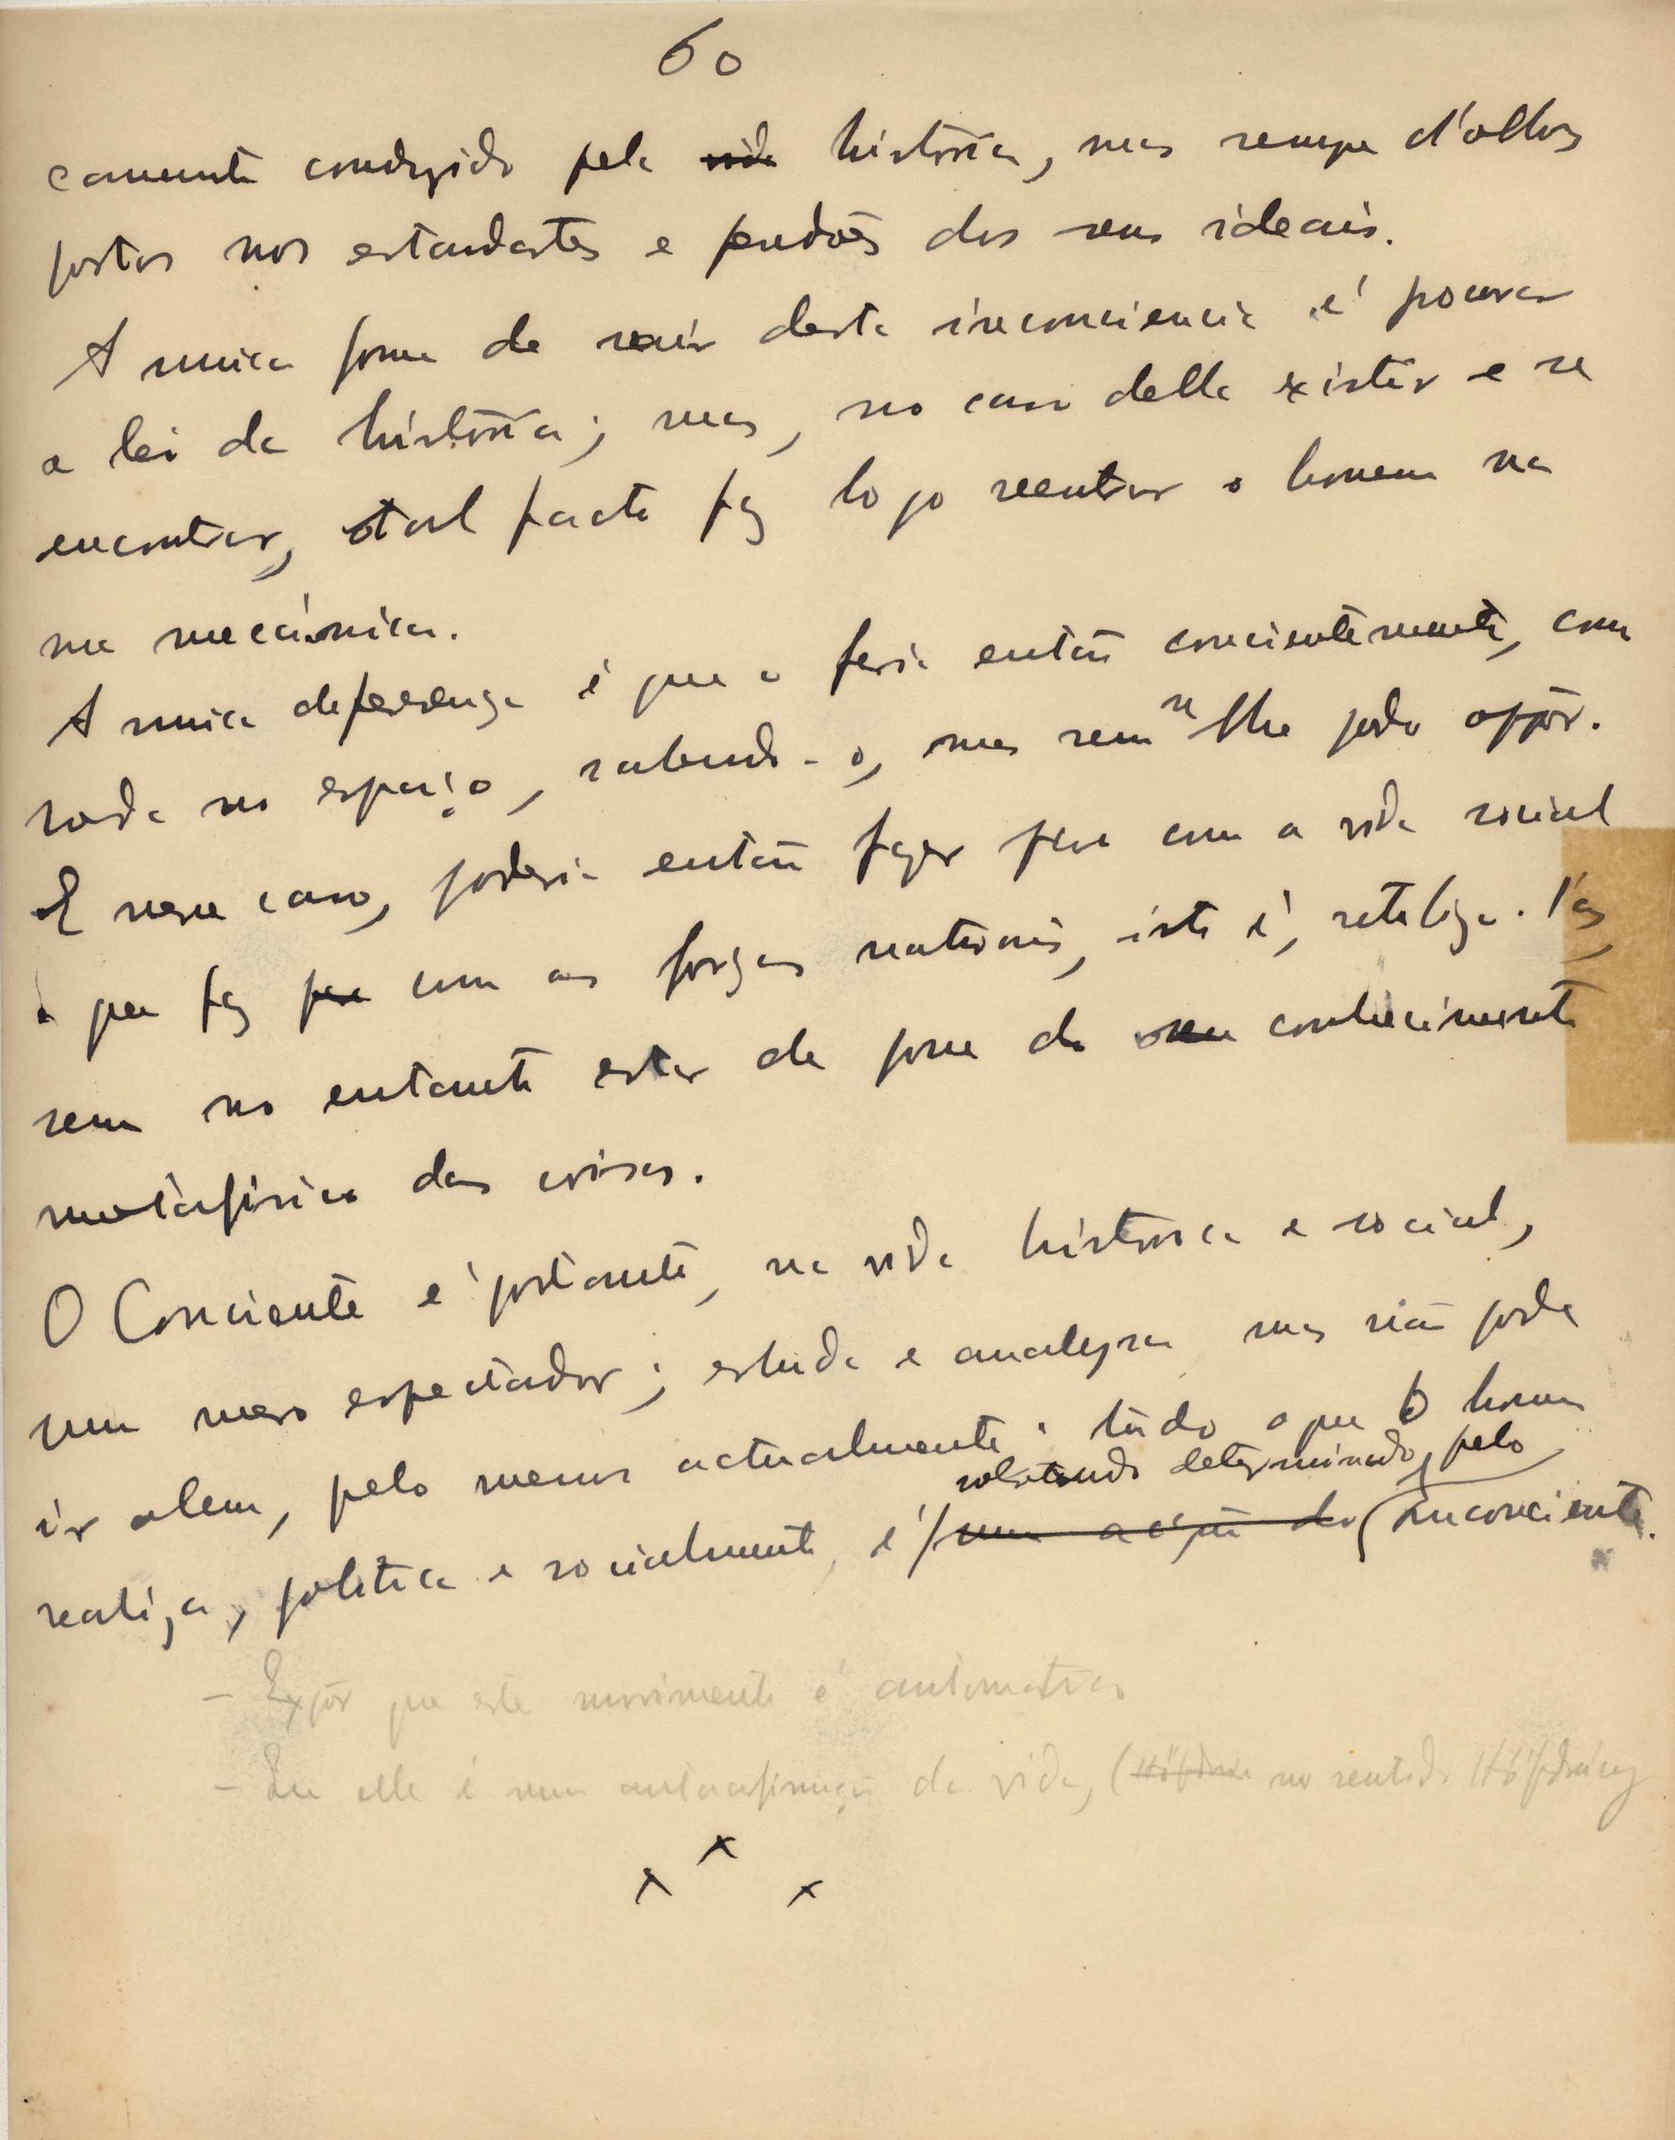 60
camente conduzido pela vida historia, mas sempre d'olhos
postos nos estandartes e pendões dos seus ideais.
A unica forma de sair desta inconciencia é procurar
a lei da historia; mas, no caso della existir e se
encontrar, tal facto faz logo reentrar o homem na
sua mecánica.
A unica deferença é que o faria então concientemente, como
roda no espaço, sabendo-o, mas sem se lhe poder oppôr.
E nesse caso, poderia então fazer
com a vida social
o que faz com as forças naturais, isto é, utiliza-las,
sem no entanto estar de posse do seu conhecimento
metafisico das coisas.
O Conciente é portanto, na vida historica e social,
um mero espectador; estuda e analysa mas não pode
ir alem, pelo menos actualmente; tudo o que o homem
sobretudo determinado pelo
realiza, politica e socialmente, é uma acção do Inconciente.
- Expôr que este movimento é automatico
- Que elle é uma autoafirmação da vida, (no sentido
x x x